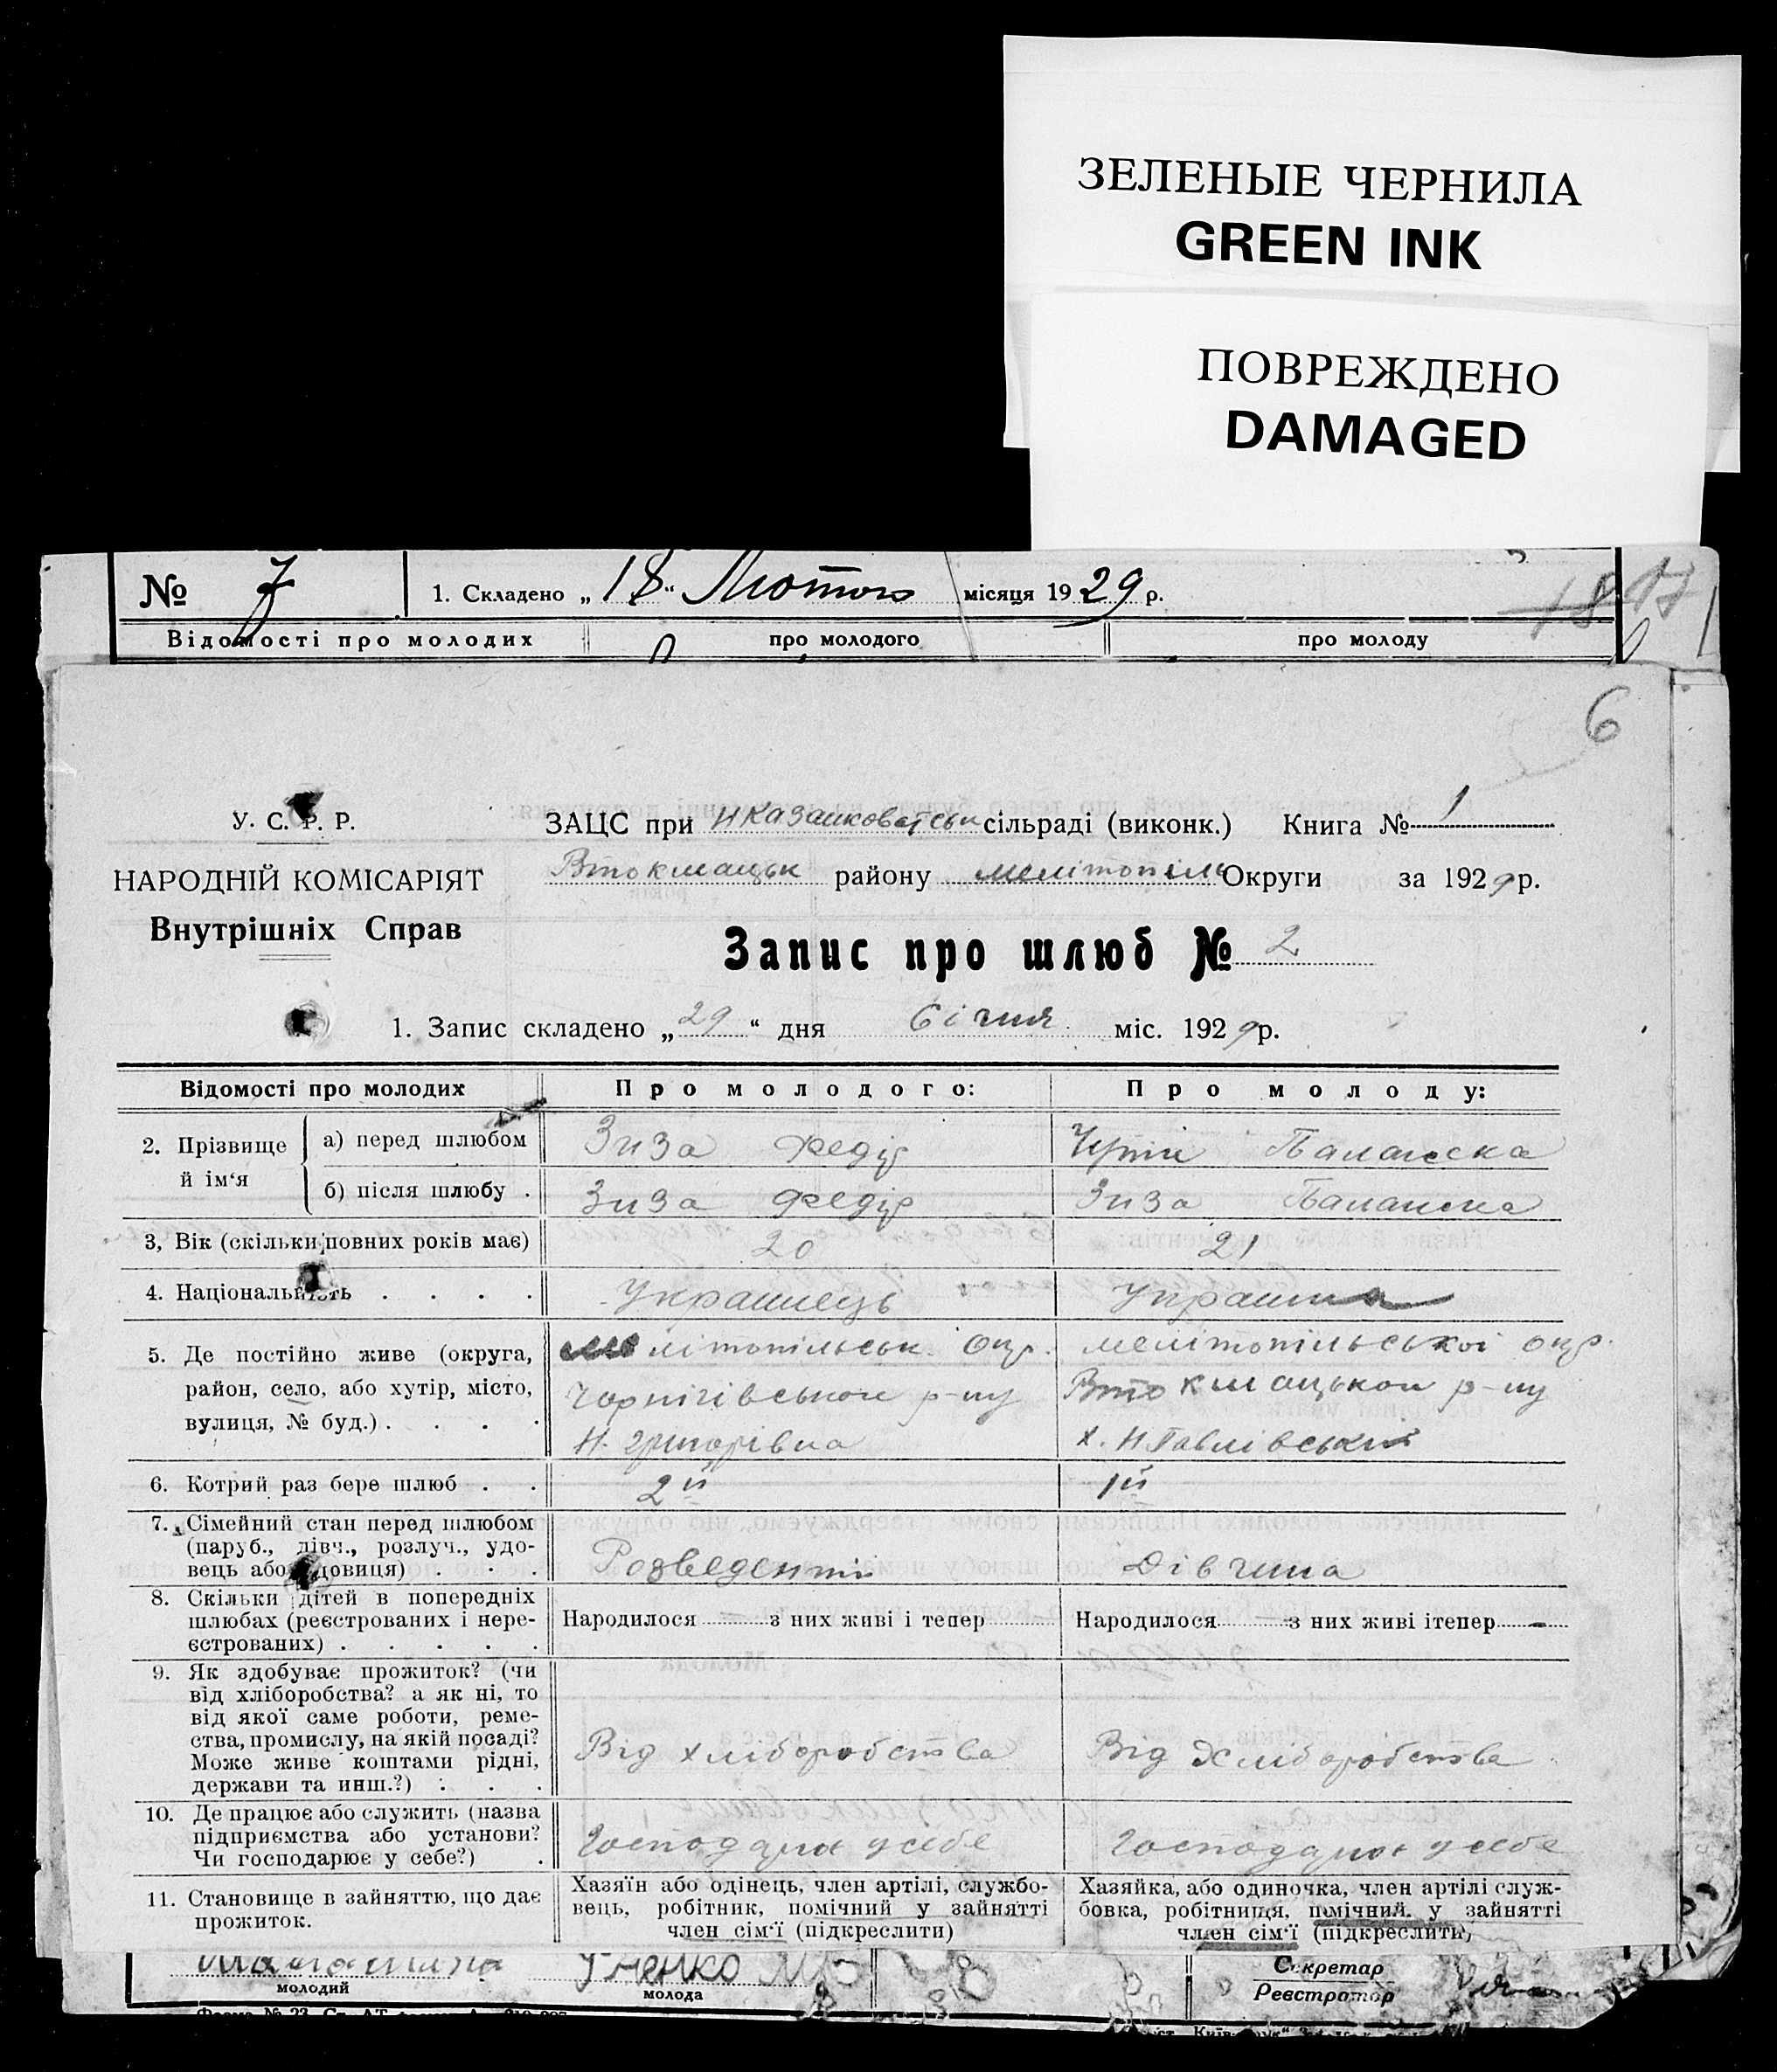 ЗЕЛЕНЫЕ ЧЕРНИЛА
GREEN INK
ПОВРЕЖДЕНО
DAMAGED
№ 7 1. Складено „18“ Лютого місяця 1929 р.
18 17
Відомості про молодих про молодого про молоду
6
У. С. Р. Р.
НАРОДНІЙ КОМІСАРІЯТ
Внутрішніх Справ
ЗАЦС при сільраді (виконк.) Книга № 1
Втокмацьк району мелітопіль Округи за 1929 р.
Запис про шлюб № 2
1. Запис складено „29“ дня Січня міс. 1929 р.
Відомості про молодих Про молодого: Про молоду:
2. Прізвище й ім‘я
а) перед шлюбом Зиза Федір Палажка
б) після шлюбу . Зиза Федір Зиза Палажка
3, Вік (скільки повних років має) 20 21
4. Національність . . . . Українець Українка
5. Де постійно живе (округа, район, село, або хутір, місто, вулиця, № буд.) . . . .
літопільськ. Окр.
Чорнігівського р-ну
Н. Григорівка
мелітопільської окр.
Втокмацького р-ну
х. Н Павлівський
6. Котрий раз бере шлюб . . 2й 1й
7. Сімейний стан перед шлюбом (паруб., дівч., розлуч., удовець або удовиця) . . . Розведений Дівчина
8. Скільки дітей в попередніх шлюбах (реєстрованих і нереєстрованих) . . . . .
Народилося — з них живі і тепер
Народилося — з них живі ітепер —
9. Як здобуває прожиток? (чи від хліборобства? а як ні, то від якої саме роботи, ремества, промислу, на якій посаді? Може живе коштами рідні, держави та инш.?) . . .
Від хліборобства Від хліборобства
10. Де працює або служить (назва підприємства або установи? Чи господарює у себе?) .
Господарює у себе Господарює у себе
11. Становище в зайняттю, що дає прожиток.
Хазяїн або одінець, член артілі, службовець, робітник, помічний у зайнятті член сім‘ї (підкреслити)
Хазяйка, або одиночка, член артілі службовка, робітниця, помічний. у зайнятті член сім‘ї (підкреслити)
молодий молода
Секретар
Реєстратор